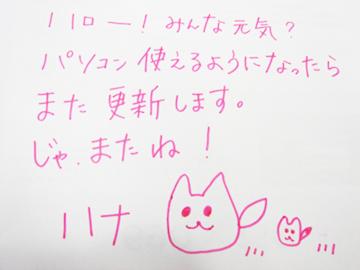 ハロー！みんな元気？
パソコン使えるようになったら
また更新します。
じゃ、またね！
ハナ